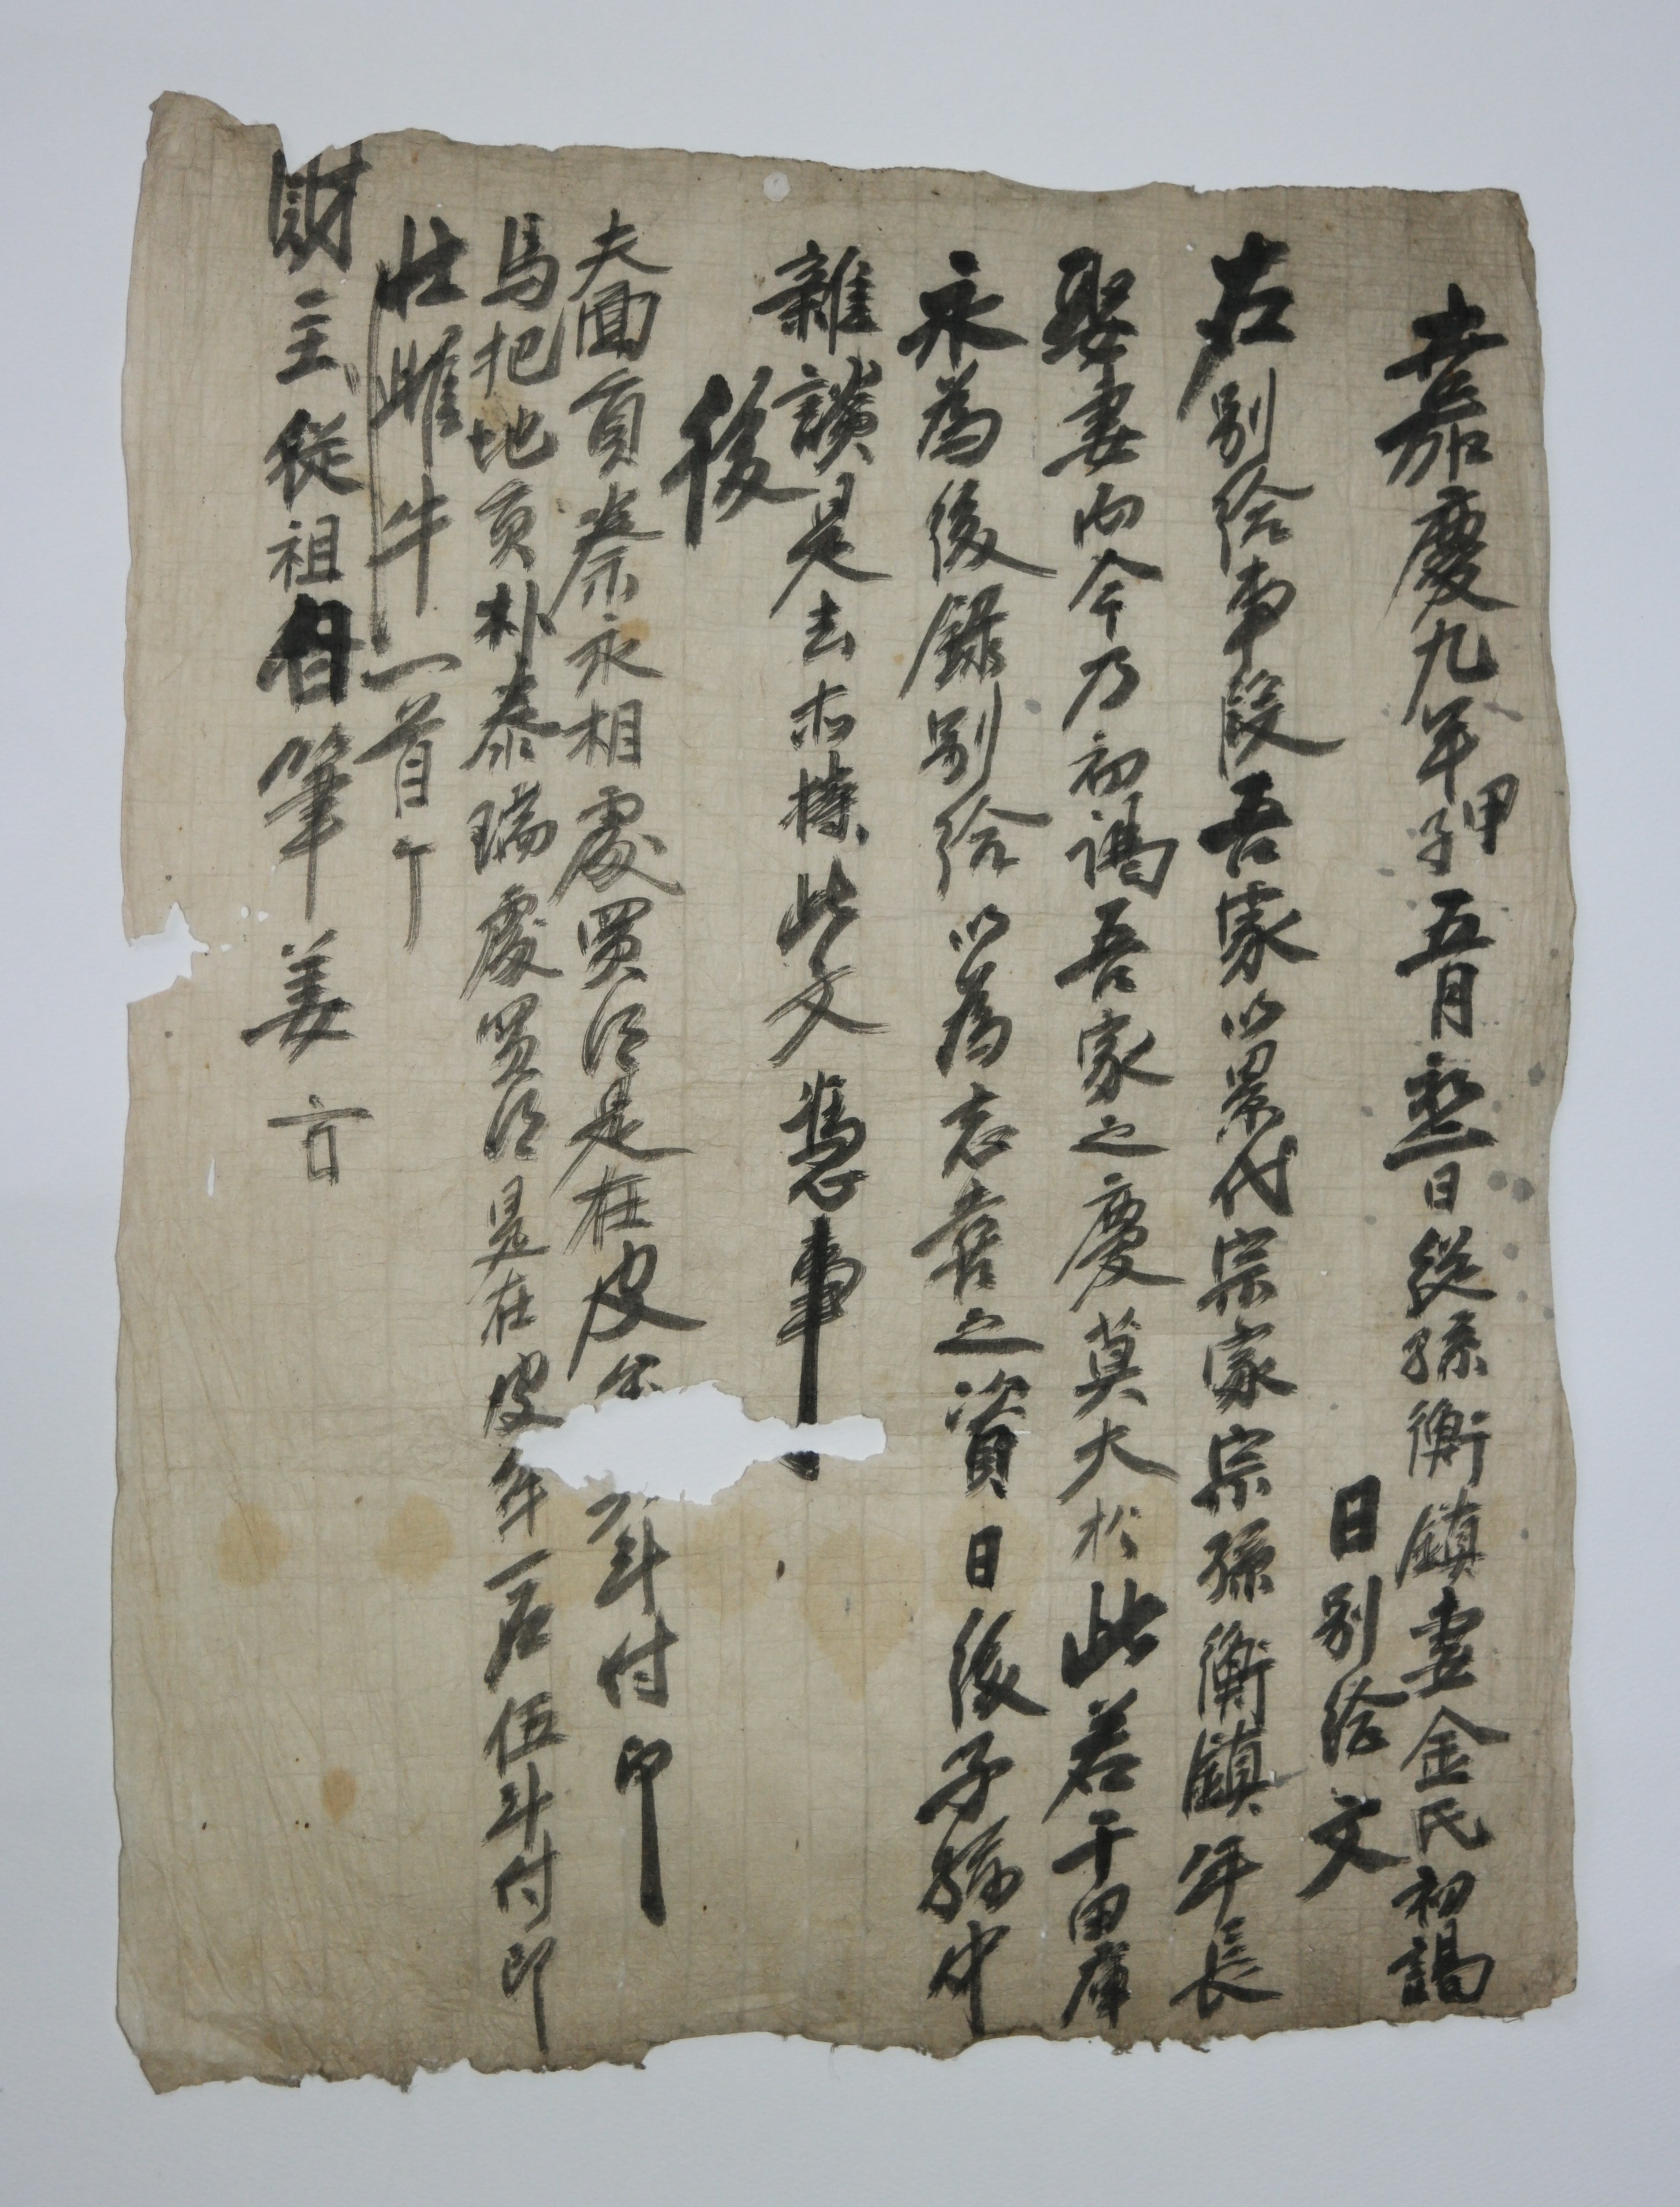 嘉慶九年甲子五月初一日從孫衡鎭妻金氏初謁
日別給文
右別給事段吾家以累代宗家宗孫衡鎭年長
娶妻而今乃初謁吾家之慶莫大於此若干田庫
永爲後錄別給以爲志喜之資日後子孫中
雜談是去等持此文憑事
後
夫面員秦永相處買得是在皮牟 斗付印
馬把地員朴泰瑞處買得是在皮牟一石伍斗付印
壯雌牛一首印
財主從祖自筆姜